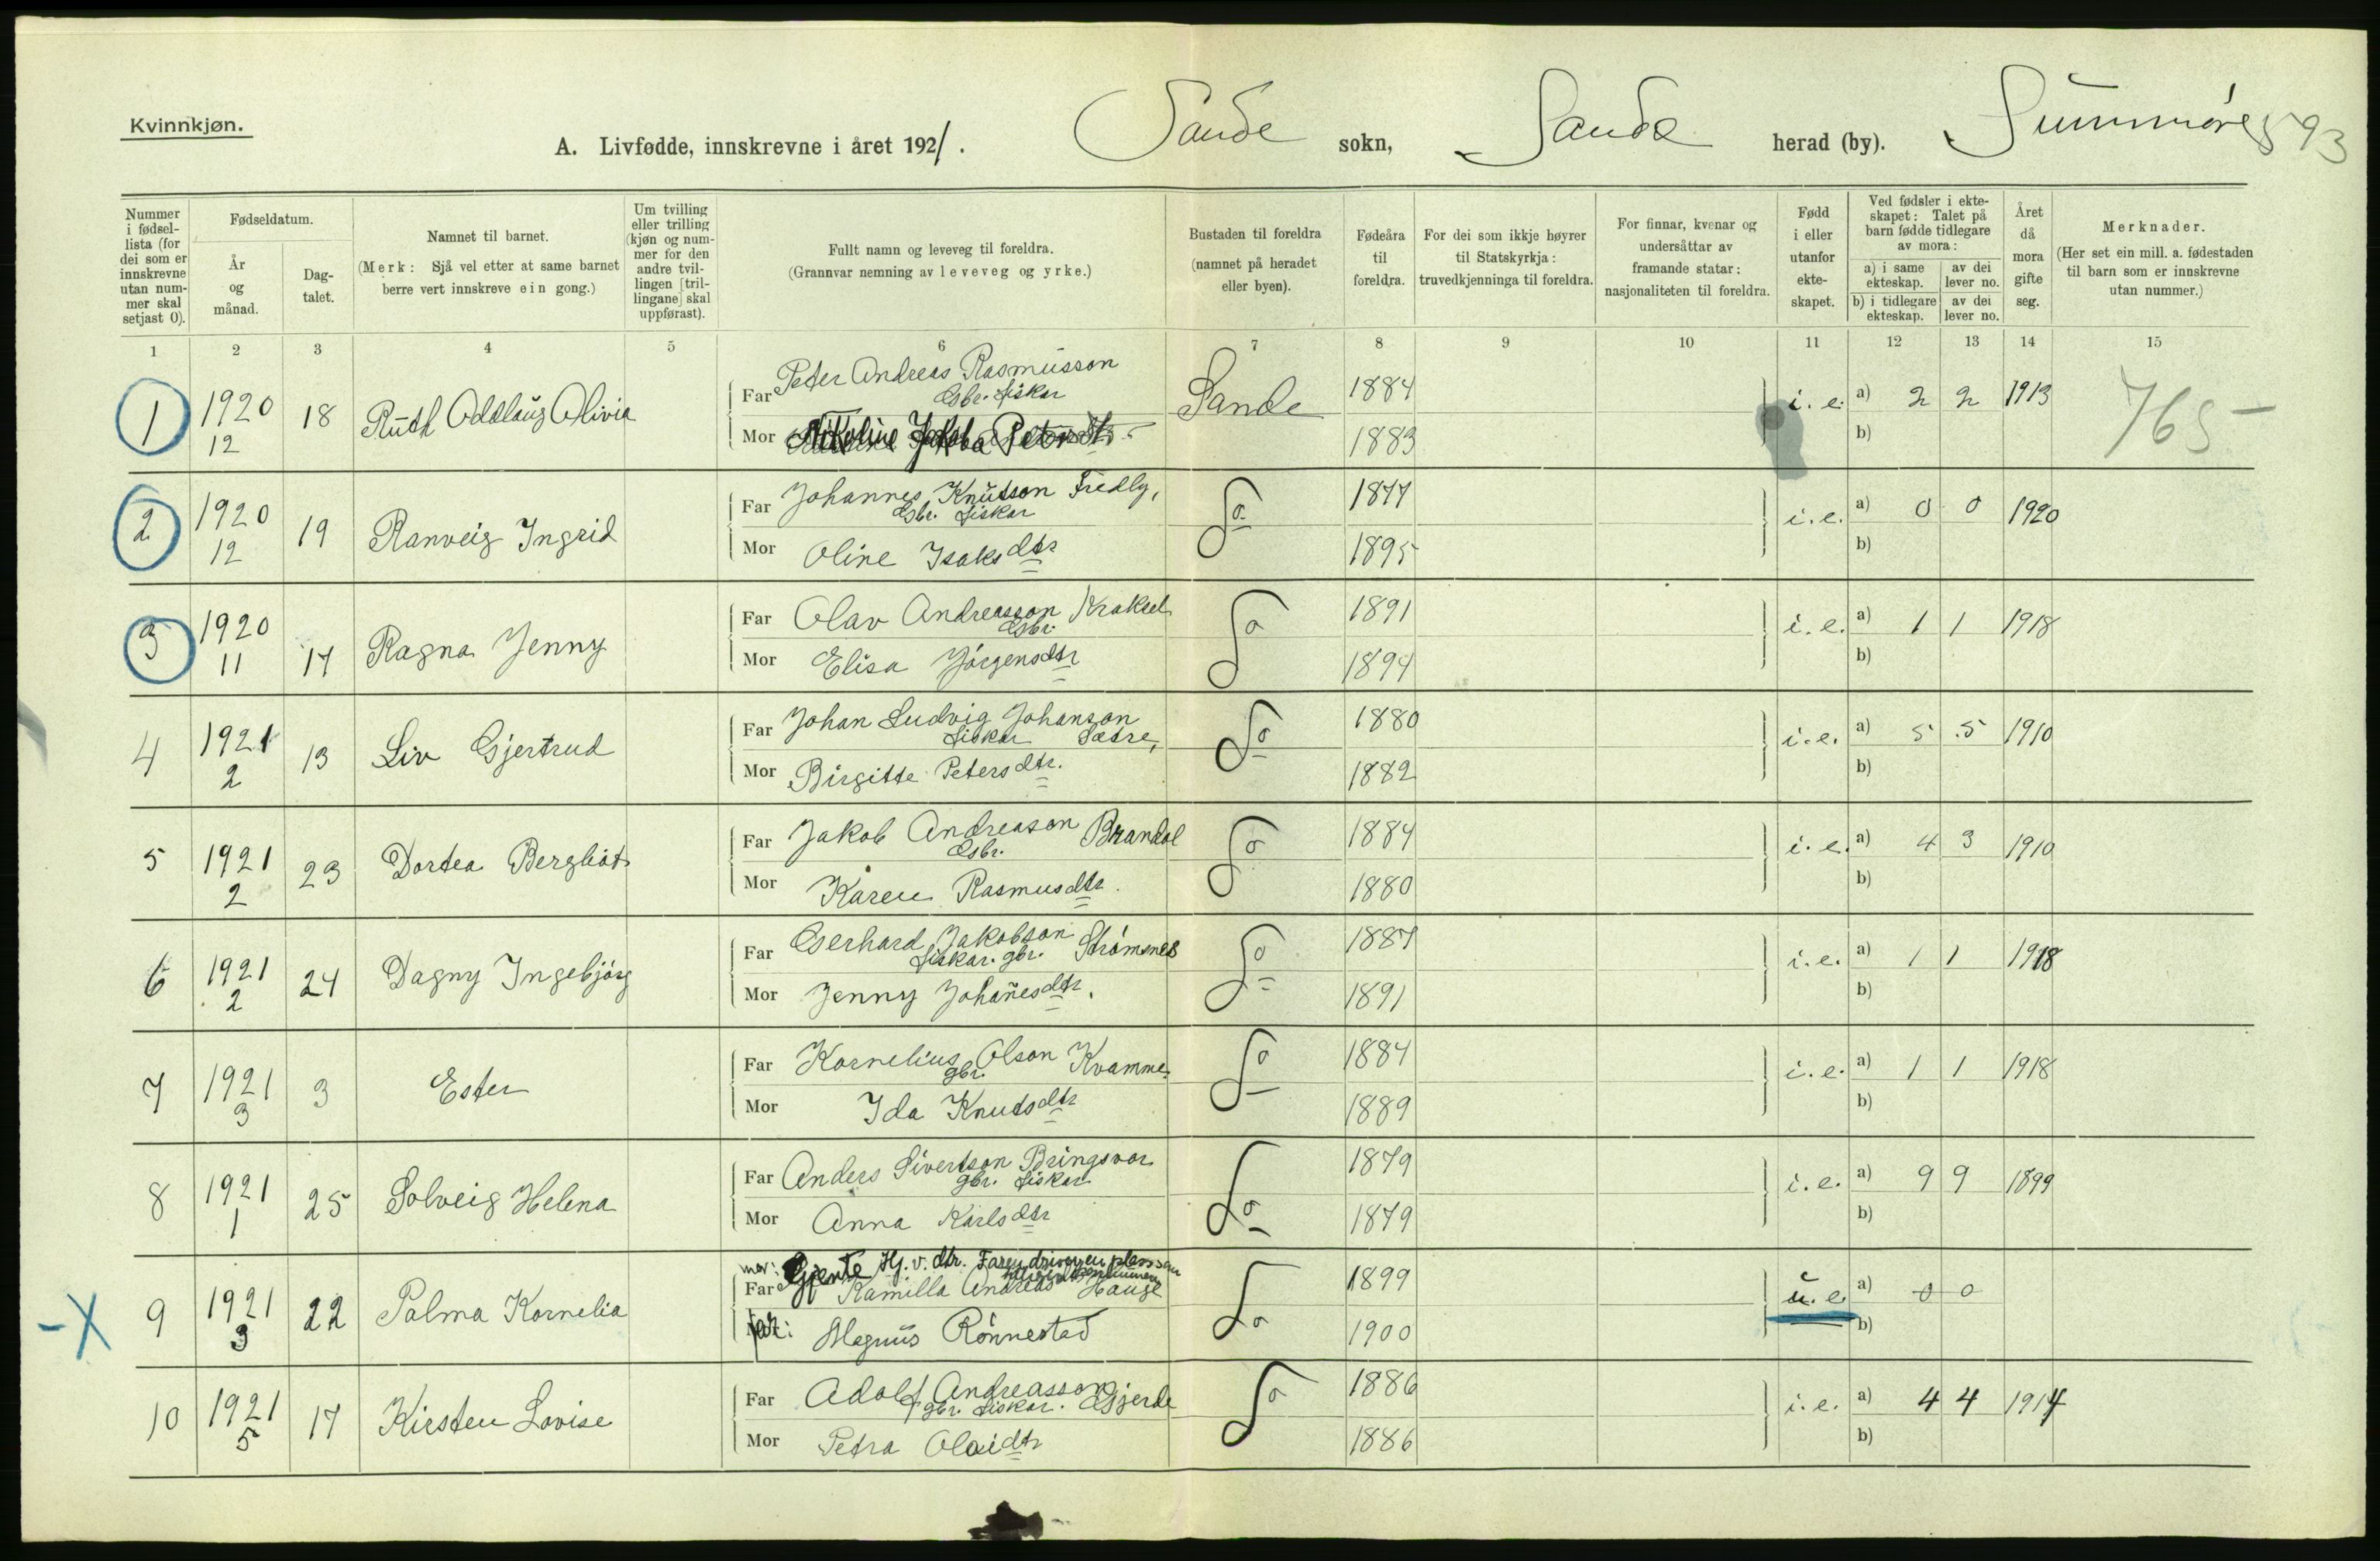 Kvinnkjøn.
A. Livfødde, innskrevne i året 1921. Sande sokn, Sande herad (by). Sunnmøre 593
Nummer i fødsel-lista (for dei som er innskrevne utan num-mer skal setjast 0).
Fødseldatum.
År og månad.
Dag-talet.
Namnet til barnet.
(Merk: Sjå vel etter at same barnet berre vert innskreve ein gong.)
Um tvilling eller trilling (kjøn og num-mer for den andre tvil-lingen [tril-lingane] skal uppførast).
Fullt namn og leveveg til foreldra.
(Grannvar nemning av leveveg og yrke.)
Bustaden til foreldra (namnet på heradet eller byen).
Fødeåra til foreldra.
For dei som ikkje høyrer til Statskyrkja: truvedkjenninga til foreldra.
For finnar, kvenar og undersåttar av framande statar: nasjonaliteten til foreldra.
Fødd i eller utanfor ekte-skapet.
Ved fødsler i ekte-skapet: Talet på barn fødde tidlegare av mora:
a) i same ekteskap. av dei lever no.
b) i tidlegare ekteskap. av dei lever no.
Året då mora gifte seg.
Merknader.
(Her set ein mill. a. fødestaden til barn som er innskrevne utan nummer.)
1 2 3 4 5 6 7 8 9 10 11 12 13 14 15
1 1920 12 18 Ruth Oddlaug Olivia
Far Peter Andreas Rasmusson Gbr. fiskar Sande 1884 i.e. a) 2 2 1913 765-
Mor Nikoline Jakoba Petersdtr 1883 b)
2 1920 12 19 Ranveig Ingrid
Far Johannes Knutson Fredly, Gbr. fiskar do 1877 i.e. a) 0 0 1920
Mor Oline Isaksdtr 1895 b)
3 1920 11 17 Ragna Jenny
Far Olav Andreasson Gbr. do 1891 i.e. a) 1 1 1918
Mor Elisa Jørgensdtr 1894 b)
4 1921 2 13 Liv Gjertrud
Far Johan Ludvig Johanson fiskar Sætre, do 1880 i.e. a) 5 5 1910
Mor Birgitte Petersdtr. 1882 b)
5 1921 2 23 Dortea Bergliot
Far Jakob Andreason Brandal Gbr. do 1884 i.e. a) 4 3 1910
Mor Karen Rasmusdtr. 1880 b)
6 1921 2 24 Dagny Ingebjørg
Far Gerhard Jakobson Strømsnes fiskar. gbr. do 1887 i.e. a) 1 1 1918
Mor Jenny Johañesdtr. 1891 b)
7 1921 3 3 Ester
Far Kornelius Olson Kvamme. gbr. do 1884 i.e. a) 1 1 1918
Mor Ida Knutsdtr 1889 b)
8 1921 1 25 Solveig Helena
Far Anders Sivertson Bringsvor gbr. fiskar do 1879 i.e. a) 9 9 1899
Mor Anna Karlsdtr 1879 b)
-X 9 1921 3 22 Palma Kornelia
mor: Gjente Hj. v. dtr. Faren driver en plass
Far Kamilla Andreas Hauge do 1899 u.e. a) 0 0
far: Magnus Rønnestad 1900 b)
10 1921 5 17 Kirsten Lovise
Far Adolf Andreasson Gjerde gbr. fiskar. do 1886 i.e. a) 4 4 1914
Mor Petra Olaidtr 1886 b)